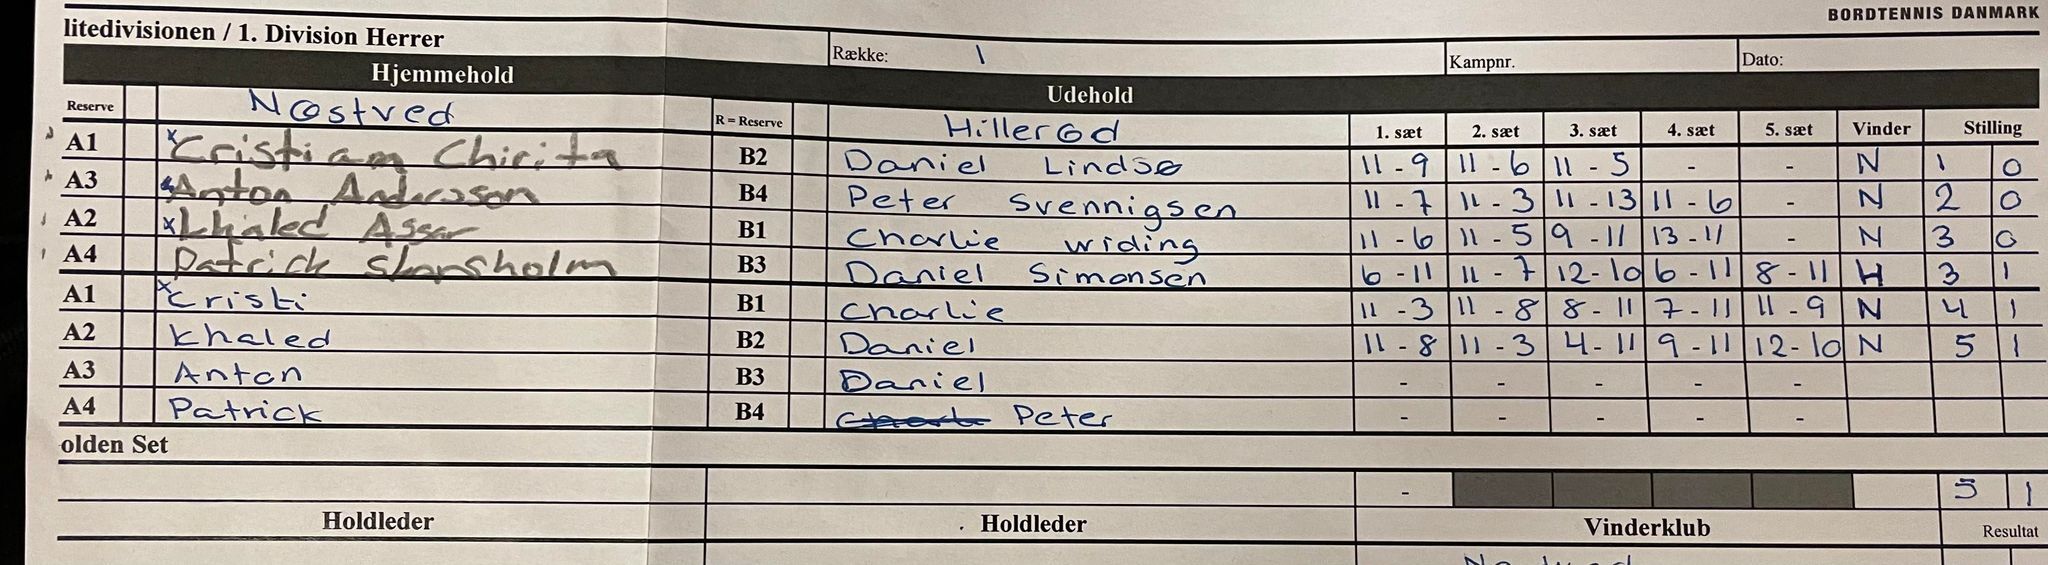 BORDTENNIS DANMARK
litedivisionen / 1. Division Herrer Række: 1 Kampnr. Dato:
Hjemmehold Udehold
Reserve Næstved R = Reserve Hillerød 1. sæt 2. sæt 3. sæt 4. sæt 5. sæt Vinder Stilling
A1 x Cristian Chirita B2 Daniel Lindsø 11 - 9 11 - 6 11 - 5 - - N 1 0
A3 Anton Andersson B4 Peter Svennigsen 11 - 7 11 - 3 11 - 13 11 - 6 - N 2 0
A2 x Khaled Assar B1 Charlie Widing 11 - 6 11 - 5 9 - 11 13 - 11 - N 3 0
A4 Patrick Skovsholm B3 Daniel Simonsen 6 - 11 11 - 7 12 - 10 6 - 11 8 - 11 H 3 1
A1 x Cristi B1 Charlie 11 - 3 11 - 8 8 - 11 7 - 11 11 - 9 N 4 1
A2 Khaled B2 Daniel 11 - 8 11 - 3 4 - 11 9 - 11 12 - 10 N 5 1
A3 Anton B3 Daniel - - - - -
A4 Patrick B4 Peter - - - - -
olden Set
- 5 1
Holdleder Holdleder Vinderklub Resultat